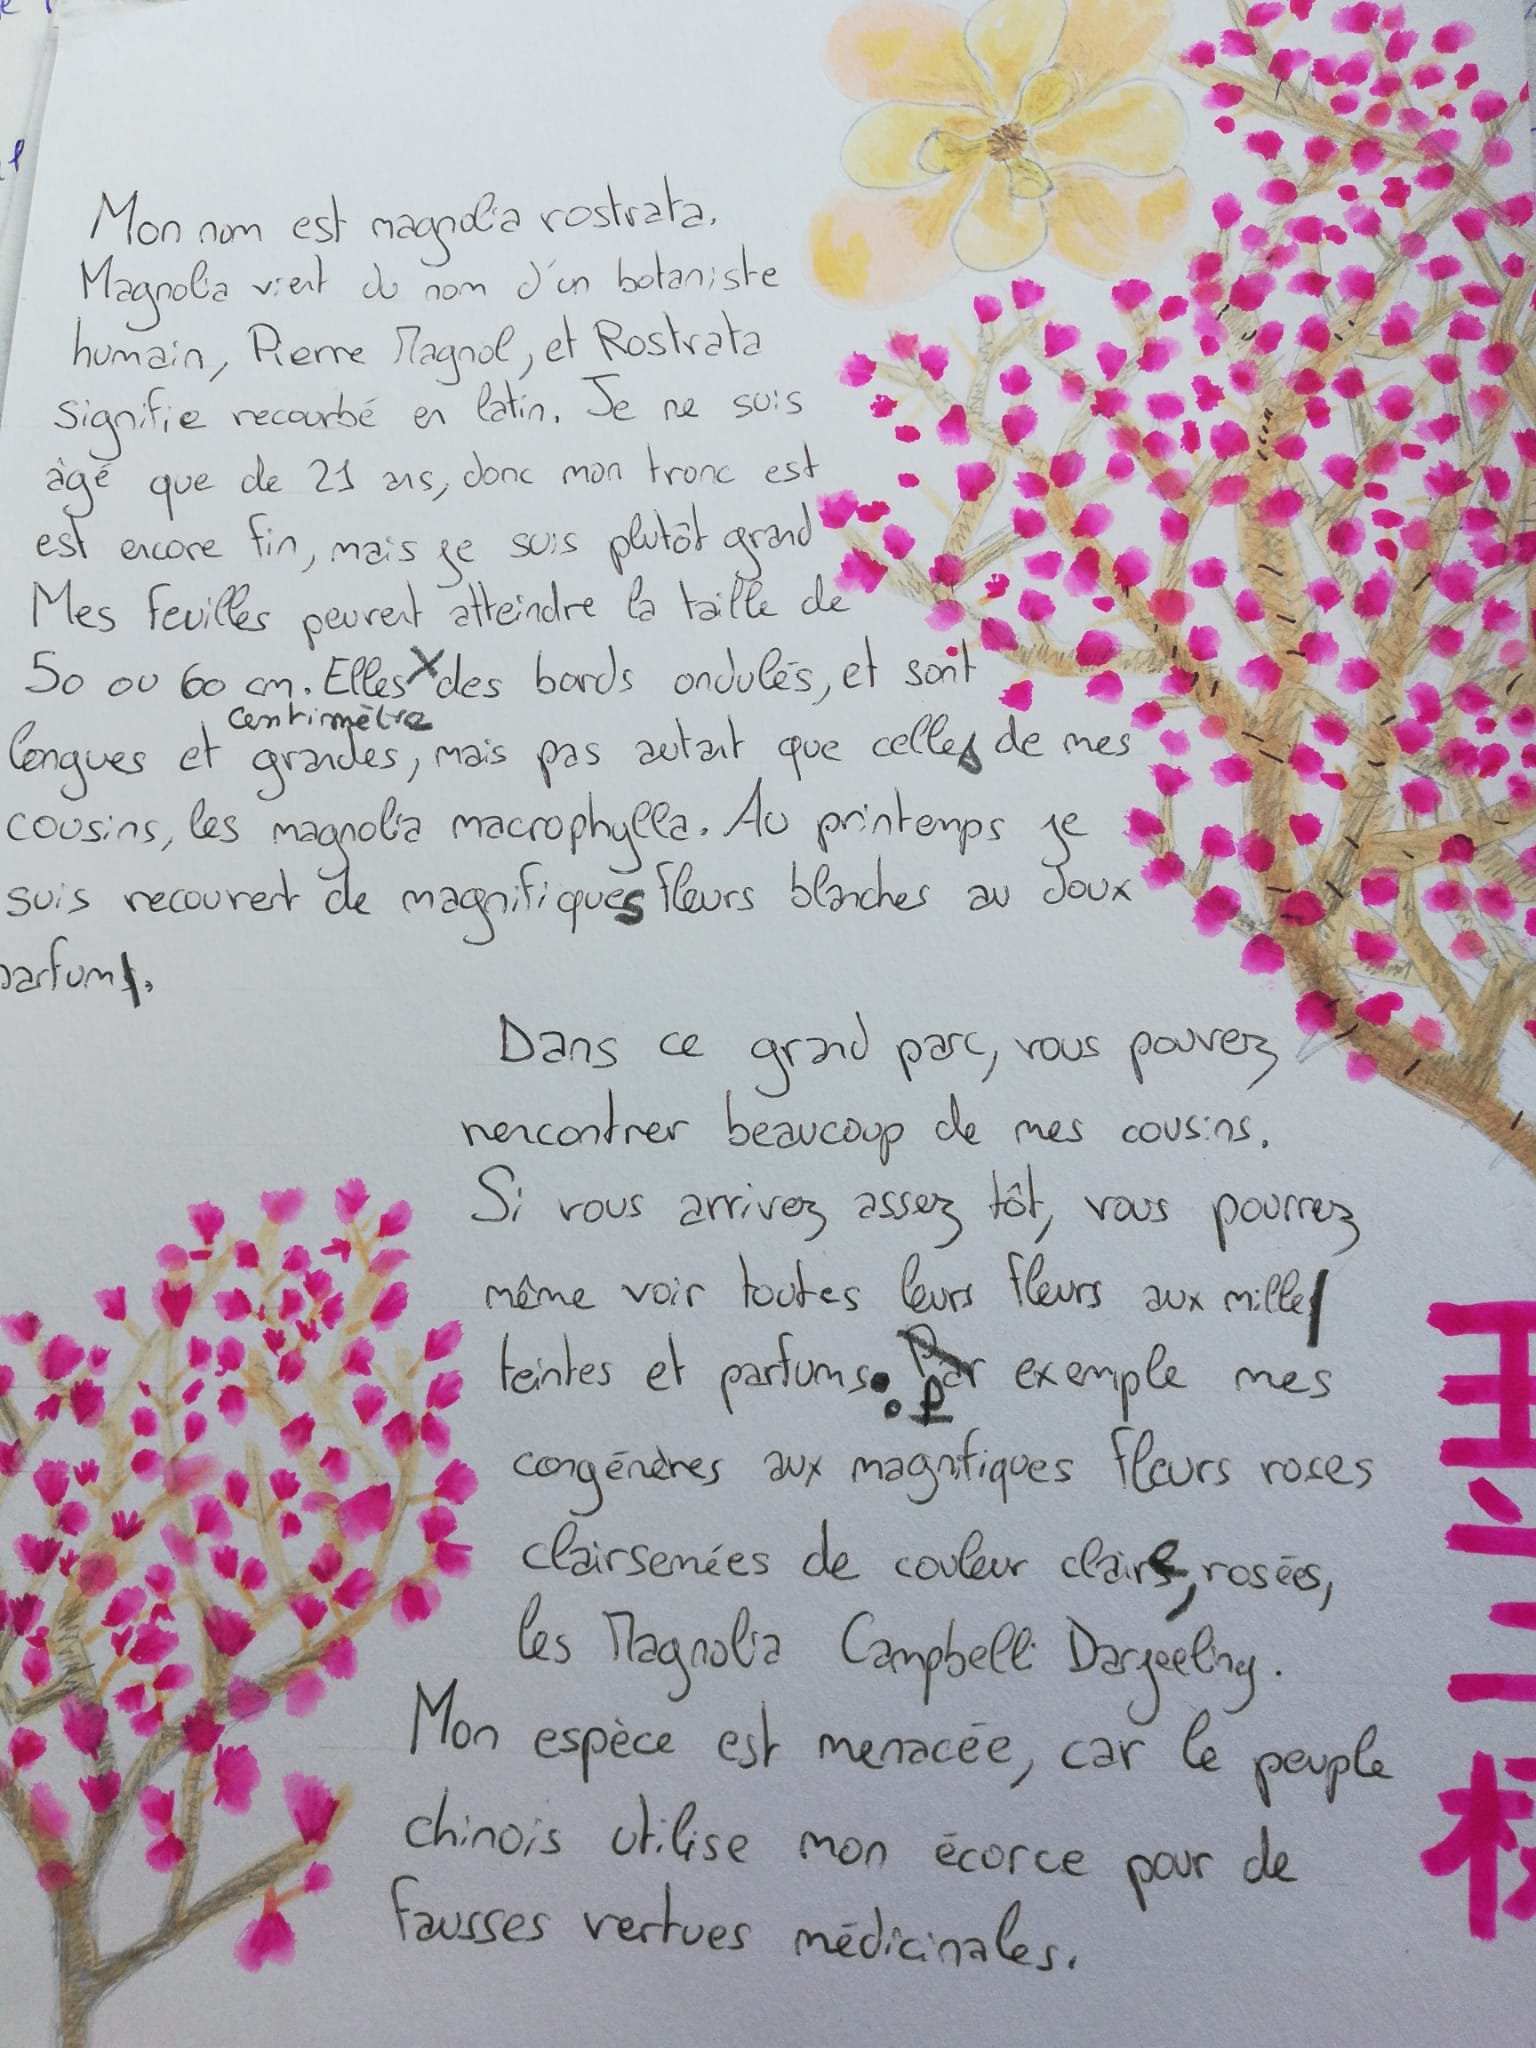 Mon nom est magnolia rostrata.
Magnolia vient du nom d'un botaniste
humain, Pierre Magnol, et Rostrata
signifie recourbé en latin. Je ne suis
âgé que de 21 ans, donc mon tronc est
est encore fin, mais je suis plutôt grand
Mes feuilles peuvent atteindre la taille de
50 ou 60 cm. Elles des bords ondulés, et sont
centimètre
longues et grandes, mais pas autant que celles de mes
cousins, les magnolia macrophylla. Au printemps je
suis recouvert de magnifiques fleurs blanches au doux
parfum.
Dans ce grand parc, vous pouvez
rencontrer beaucoup de mes cousins.
Si vous arrivez assez tôt, vous pourrez
même voir toutes leurs fleurs aux mille
teintes et parfums. Par exemple mes
congénères aux magnifiques fleurs roses
clairsemées de couleur claire, rosées,
les Magnolia Campbelli Darjeeling.
Mon espèce est menacée, car le peuple
chinois utilise mon écorce pour de
fausses vertues médicinales.